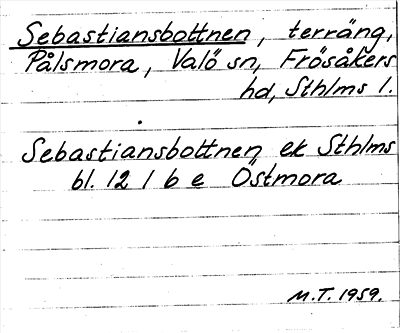 Sebastiansbottnen, terräng,
Pålsmora, Valö sn, Frösåkers
hd, Sthlms l.
Sebastiansbottnen ek Sthlms
bl. 12 1 b e Östmora
M.T. 1959.